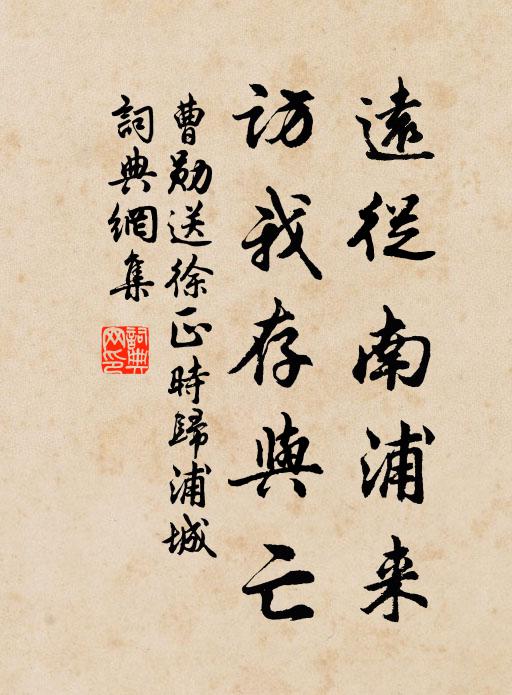 遠從南浦来
訪我存與亡
曹勛送徐正時歸浦城
詞典網集
詞典网印